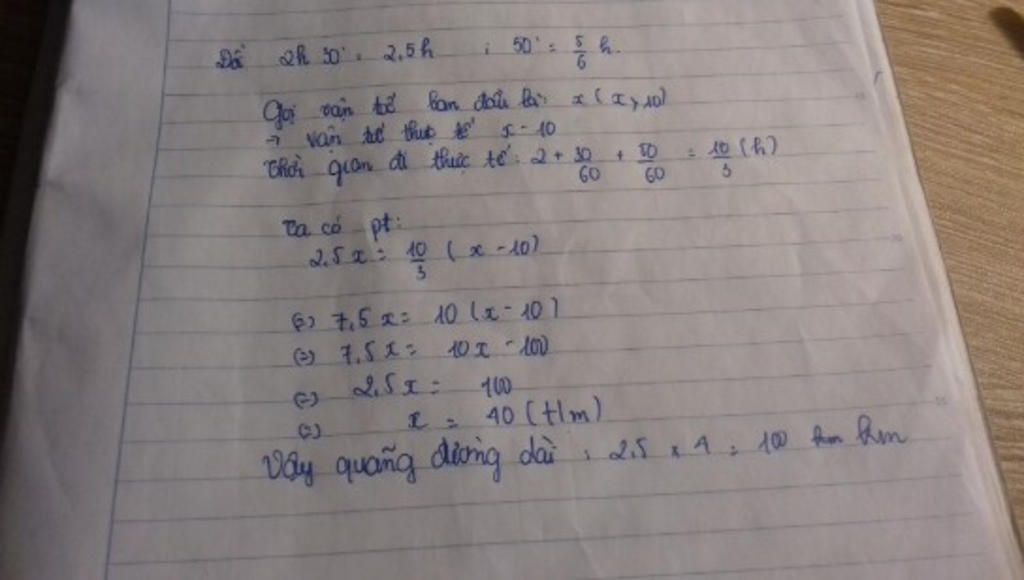 Đổi 2h 30' = 2,5h ; 50' = 5/6 h.
Gọi vận tốc ban đầu là: x (x > 10)
→ vận tốc thực tế x - 10
Thời gian đi thực tế: 2 + 30/60 + 50/60 = 10/3 (h)
Ta có pt:
2,5x = 10/3 (x - 10)
(=) 7,5x = 10 (x - 10)
(=) 7,5x = 10x - 100
(=) 2,5x = 100
(=) x = 40 (t/m)
Vậy quãng đường dài : 2,5 x 4 = 100 km km